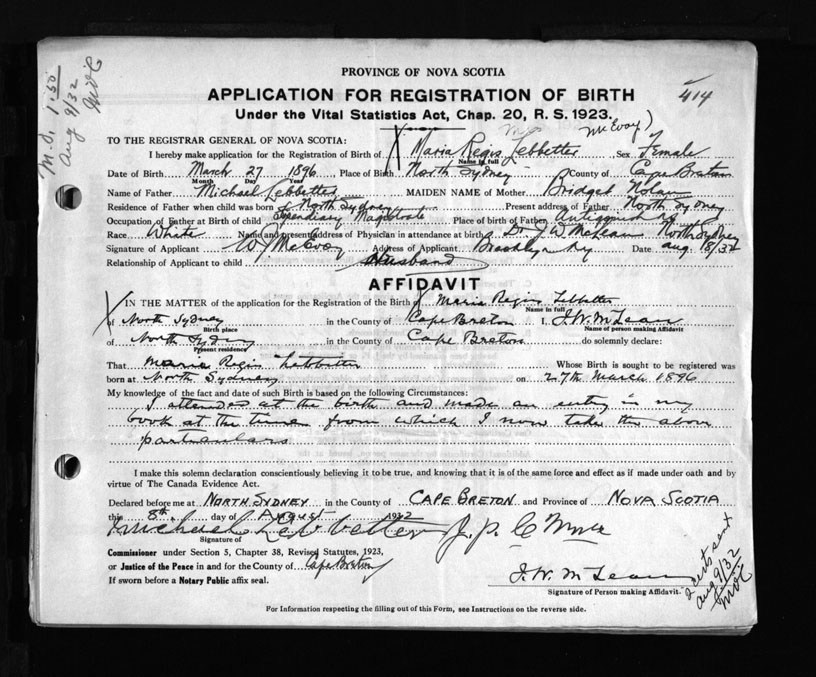 M.O. 1.50
Aug 9/32
MVC
PROVINCE OF NOVA SCOTIA
APPLICATION FOR REGISTRATION OF BIRTH
414
Under the Vital Statistics Act, Chap. 20, R. S. 1923.
McEvoy)
TO THE REGISTRAR GENERAL OF NOVA SCOTIA:
I hereby make application for the Registration of Birth of Maria Regis Lebbetter Sex Female
Name in full
Date of Birth March 27 1896 Place of Birth North Sydney County of Cape Breton
Month Day Year
Name of Father Michael Lebbetter MAIDEN NAME of Mother Bridget Nolan
Residence of Father when child was born North Sydney Present address of Father North Sydney
Occupation of Father at Birth of child Stipendiary Magistrate Place of birth of Father Antigonish NS
Race White Name and present address of Physician in attendance at birth Dr. J. W. McLean North Sydney
Signature of Applicant W J McEvoy Address of Applicant Brooklyn Ny Date Aug. 8/32
Relationship of Applicant to child Husband
AFFIDAVIT
IN THE MATTER of the application for the Registration of the Birth of Marie Regis Lebbetter
Name in full
of North Sydney in the County of Cape Breton I, J. W. McLean
Birth place Name of person making Affidavit
of North Sydney in the County of Cape Breton do solemnly declare:
Present residence
That Marie Regis Lebbetter Whose Birth is sought to be registered was
born at North Sydney on 27th March 1896
My knowledge of the fact and date of such Birth is based on the following Circumstances:
I attended at the birth and made an entry in my
book at the time from which I now take the above
particulars
I make this solemn declaration conscientiously believing it to be true, and knowing that it is of the same force and effect as if made under oath and by
virtue of The Canada Evidence Act.
Declared before me at NORTH SYDNEY in the County of CAPE BRETON and Province of NOVA SCOTIA
this 8th. day of August 1932
Michael Lebbetter J. P.
Signature of
Commissioner under Section 5, Chapter 38, Revised Statutes, 1923,
or Justice of the Peace in and for the County of Cape Breton
If sworn before a Notary Public affix seal.
J. W. McLean
Signature of Person making Affidavit.
2 certs sent
Aug 9/32
MVC
For Information respecting the filling out of this Form, see Instructions on the reverse side.